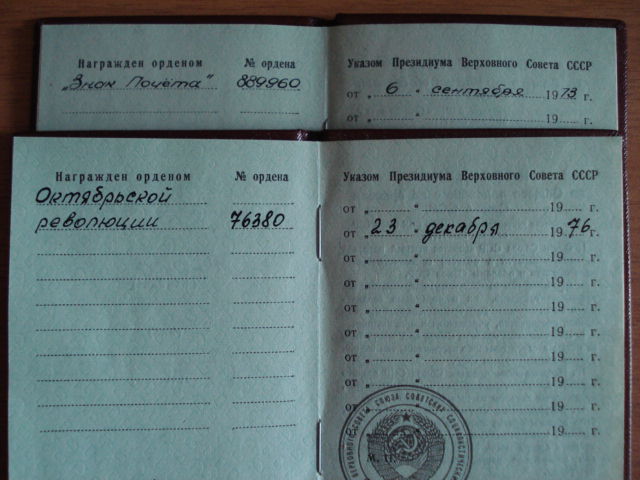 Награжден орденом № ордена Указом Президиума Верховного Совета СССР
„Знак Почёта" 889960 от „ 6 " сентября 1973 г.
от „ " 19 г.
Награжден орденом № ордена Указом Президиума Верховного Совета СССР
Октябрьской от „ " 19 г.
революции 76380 от „ 23 " декабря 1976 г.
от „ " 19 г.
от „ " 19 г.
от „ " 19 г.
от „ " 19 г.
от „ " 19 г.
от „ " 19 г.
от „ " 19 г.
19 г.
ВЕРХОВНОГО СОВЕТА СОЮЗА СОВЕТСКИХ СОЦИАЛИСТИЧЕСКИХ
М. П.